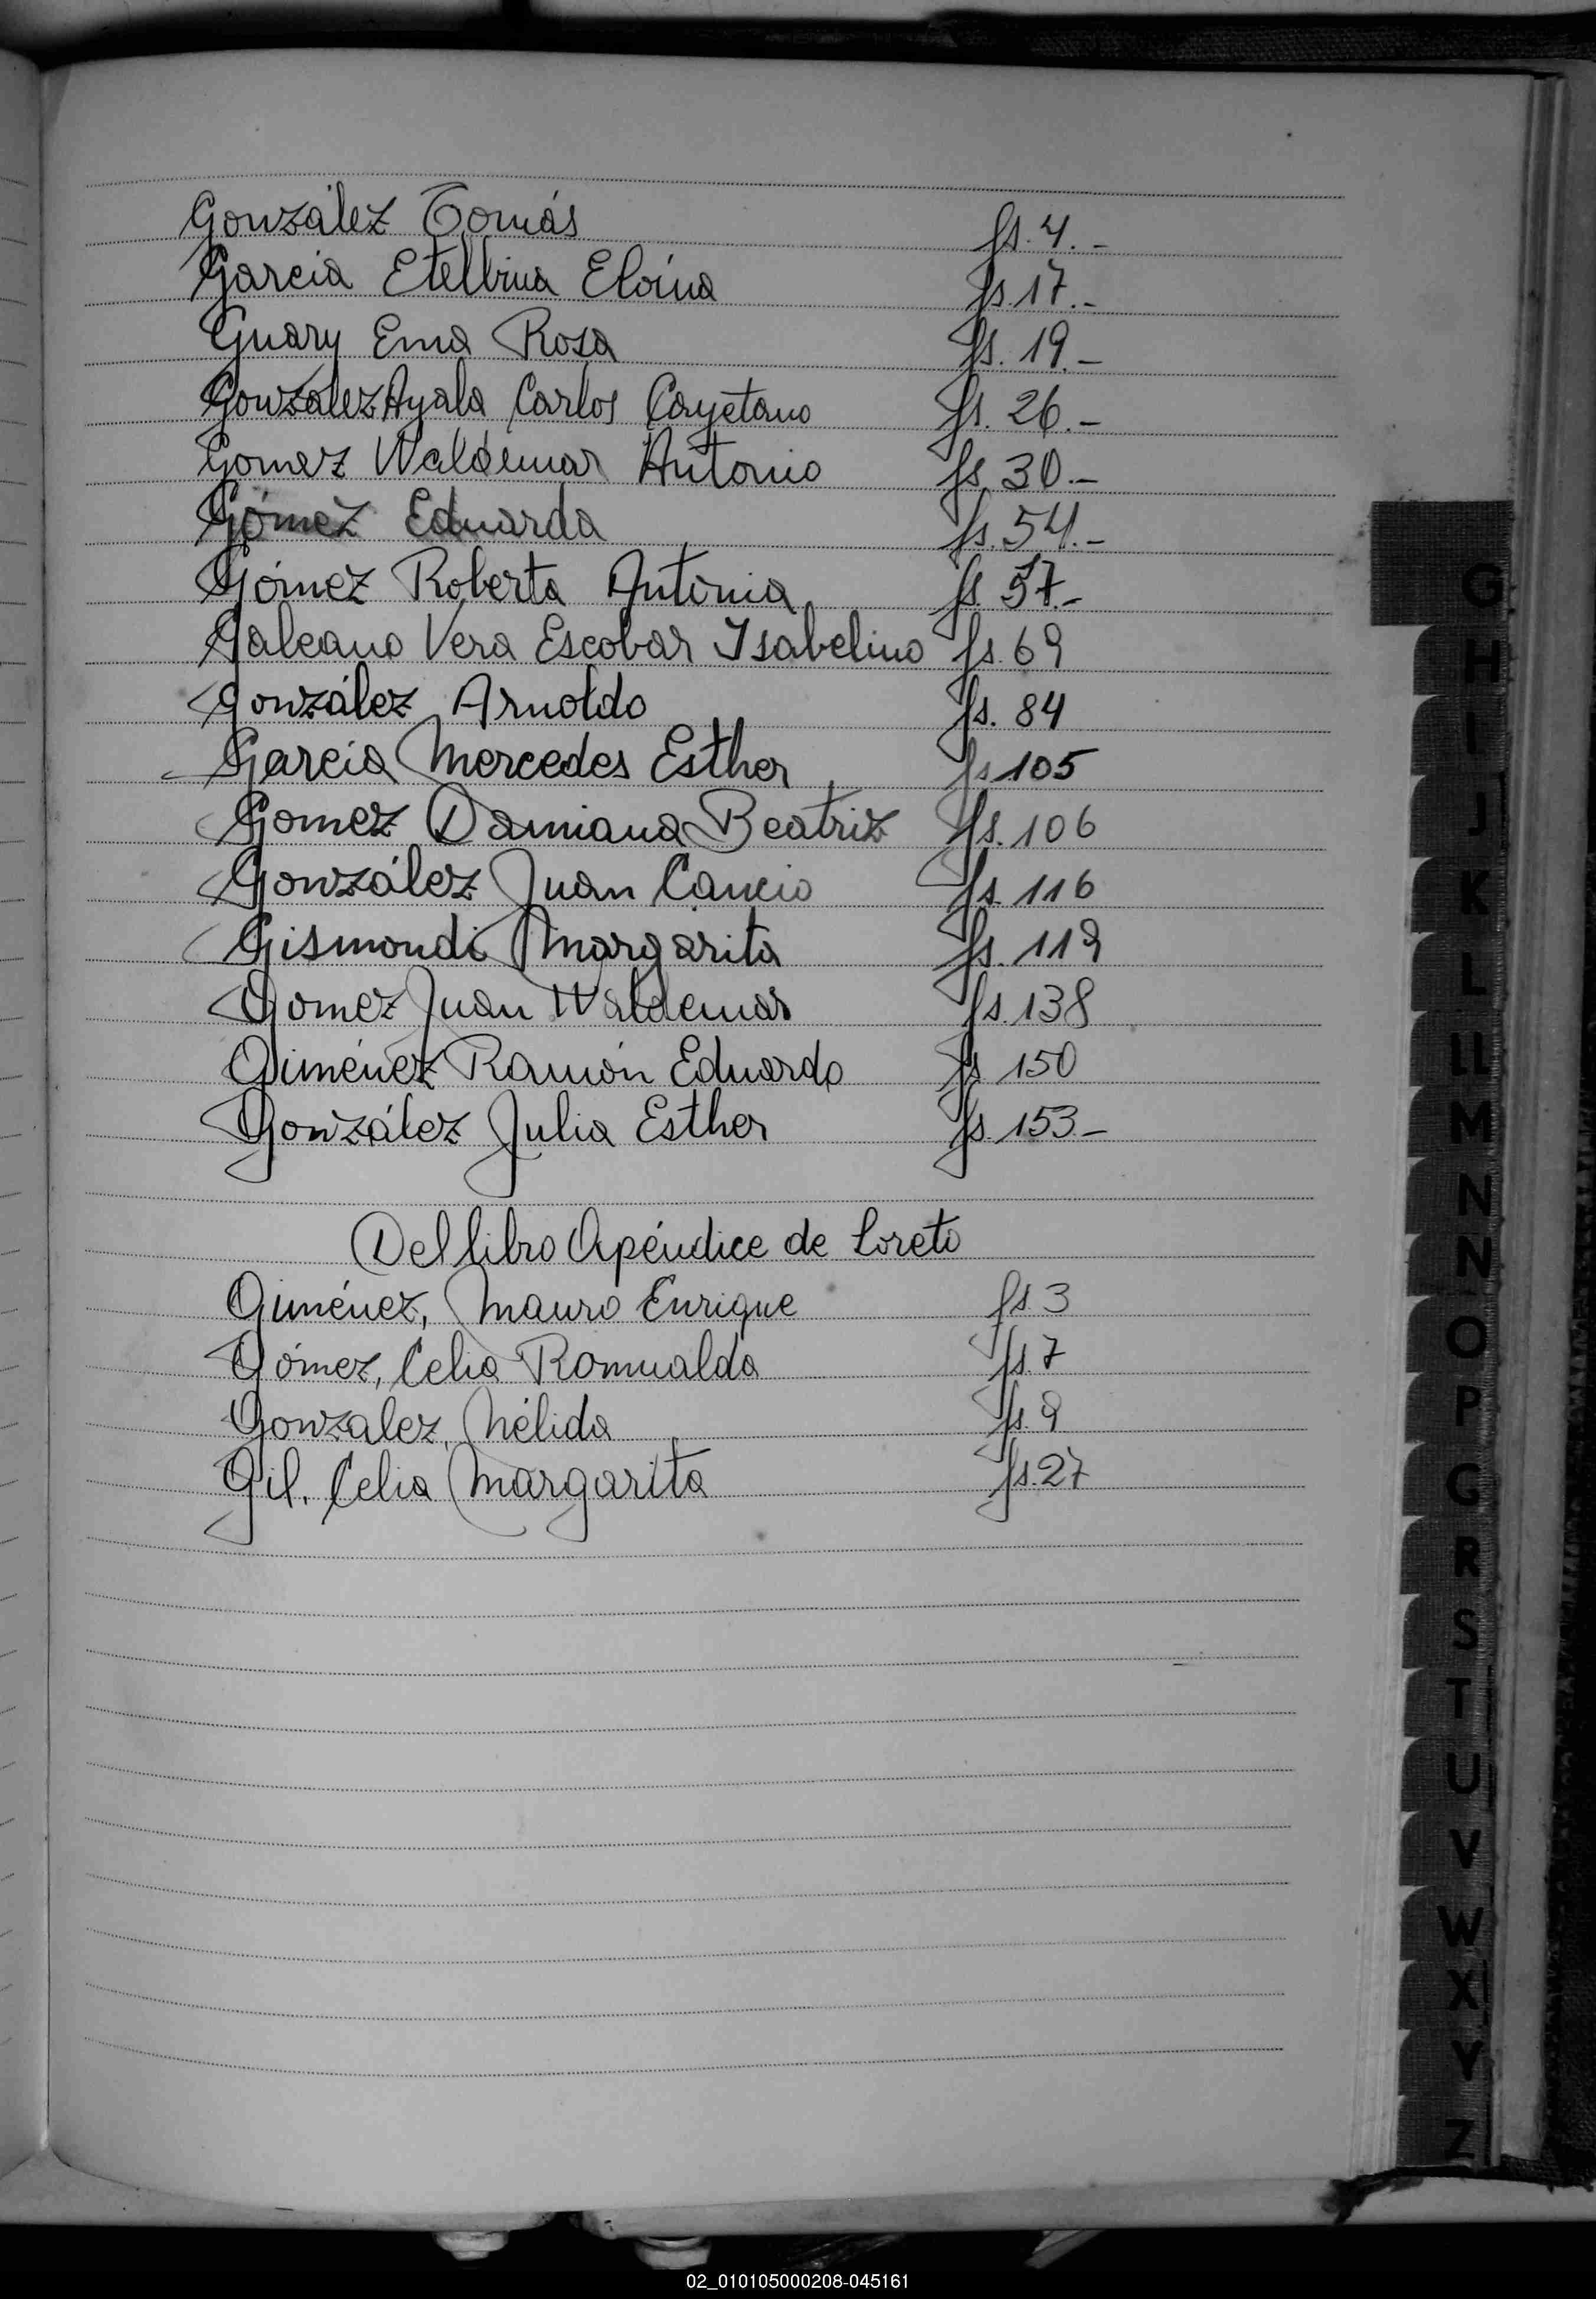 González Tomás fs. 4.-
Garcia Etelbina Eloína fs. 17.-
Guary Ema Rosa fs. 19.-
Gonzalez Ayala Carlos Cayetano fs. 26.-
Gomez Waldemar Antonio fs. 30.-
Gómez Eduarda fs. 54.-
Gómez Roberta Antonia fs. 57.-
Galeano Vera Escobar Isabelino fs. 69
González Arnoldo fs. 84
Garcia Mercedes Esther fs 105
Gomez Damiana Beatriz fs. 106
González Juan Cancio fs. 116
Gismondi Margarita fs. 119
Gomez Juan Waldemar fs. 138
Giménez Ramón Eduardo fs 150
González Julia Esther fs. 153-
Del libro Apéndice de Loreto
Giménez, Mauro Enrique fs 3
Gómez, Celia Romualda fs. 7
Gonzalez, Nélida fs. 9
Gil, Celia Margarita fs. 27
G
H
I
J
K
L
LL
M
N
Ñ
O
P
Q
R
S
T
U
V
W
X
Y
Z
02_010105000208-045161